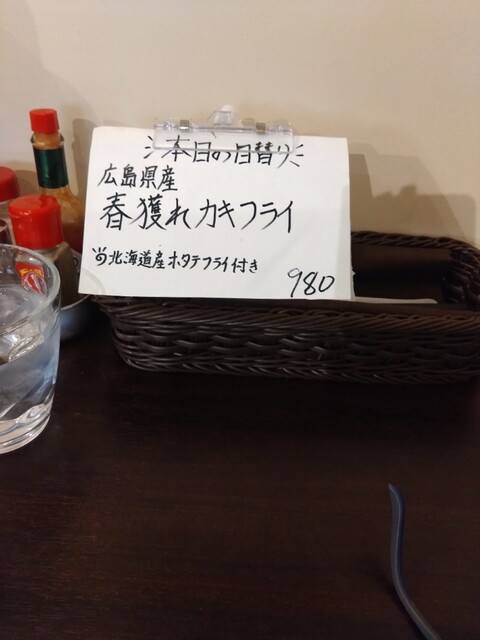 本日の日替り
広島県産
春獲れカキフライ
北海道産ホタテフライ付き
980